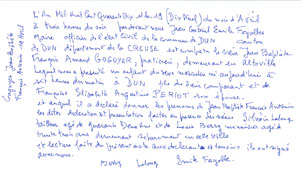 L'An Mil huit Cent Quarante Six et le 19 (Dix Neuf) du mois d'Avril
à trois heures du soir pardevant nous Jean Gabriel Emile Fayolle
Maire officier de l'état Civil de la commune de DUN canton
de DUN département de la CREUSE est comparu le sieur Jean Baptiste
François Armand GOGUYER, praticien, demeurant au
lequel nous a présenté un enfant du sexe masculin né aujourd'hui à
heures du matin à DUN de lui comparant et de
Françoise Elizabeth Augustine PERIOT son épouse
et auquel il a déclaré donner les prénoms de Jean Baptiste Francis Antonin
les dites déclaration et présentation faites en présence des sieurs Silvain Lelong
âgé de quarante Deux Ans et de Louis Bessy menuisier agé de
trente trois ans demeurant séparément en cette ville
et lecture faite du présent acte aux déclarant et témoins ils ont signé
avec nous.
Bessy Lelong Emile Fayolle
Goguyer Jean Baptiste
Francis Antonin 19 Avril